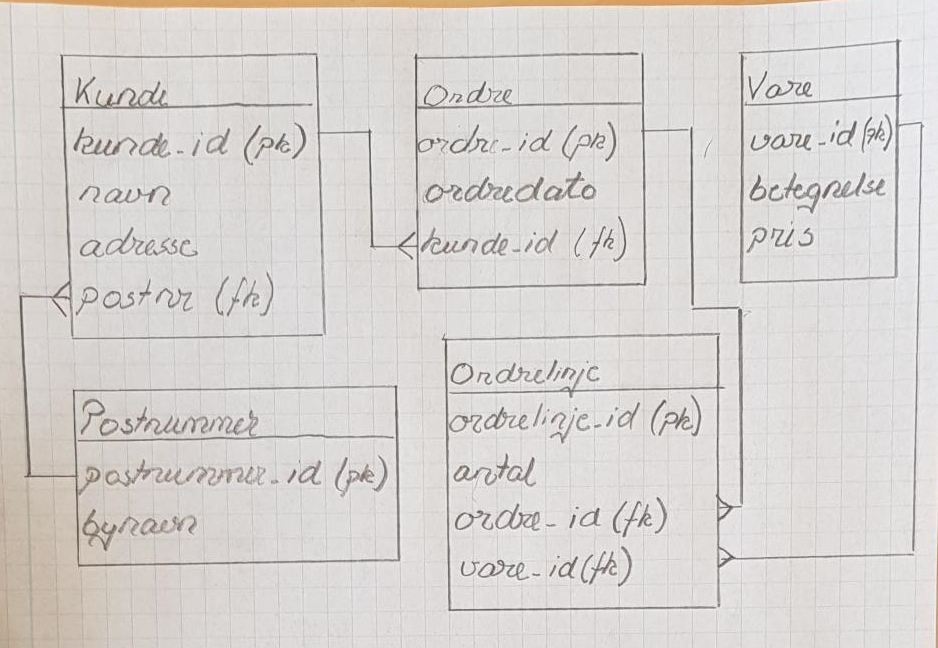 Kunde
kunde_id (pk)
navn
adresse
postnr (fk)
Ordre
ordre_id (pk)
ordredato
kunde_id (fk)
Vare
vare_id (pk)
betegnelse
pris
Postnummer
postnummer_id (pk)
bynavn
Ordrelinje
ordrelinje_id (pk)
antal
ordre_id (fk)
vare_id (fk)